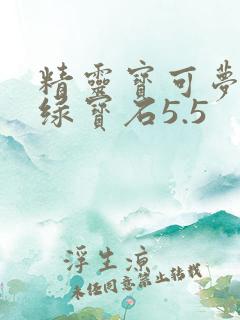 精靈寶可夢
綠寶石5.5
浮生涼
未经同意禁止转载